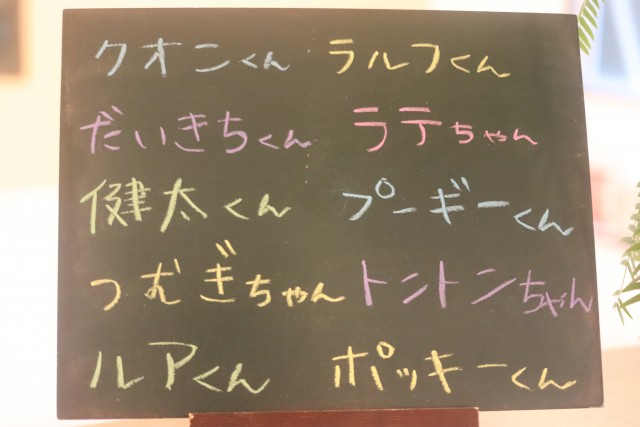 クオンくん ラルフくん
だいきちくん ラテちゃん
健太くん プーギーくん
つむぎちゃん トントンちゃん
ルアくん ポッキーくん